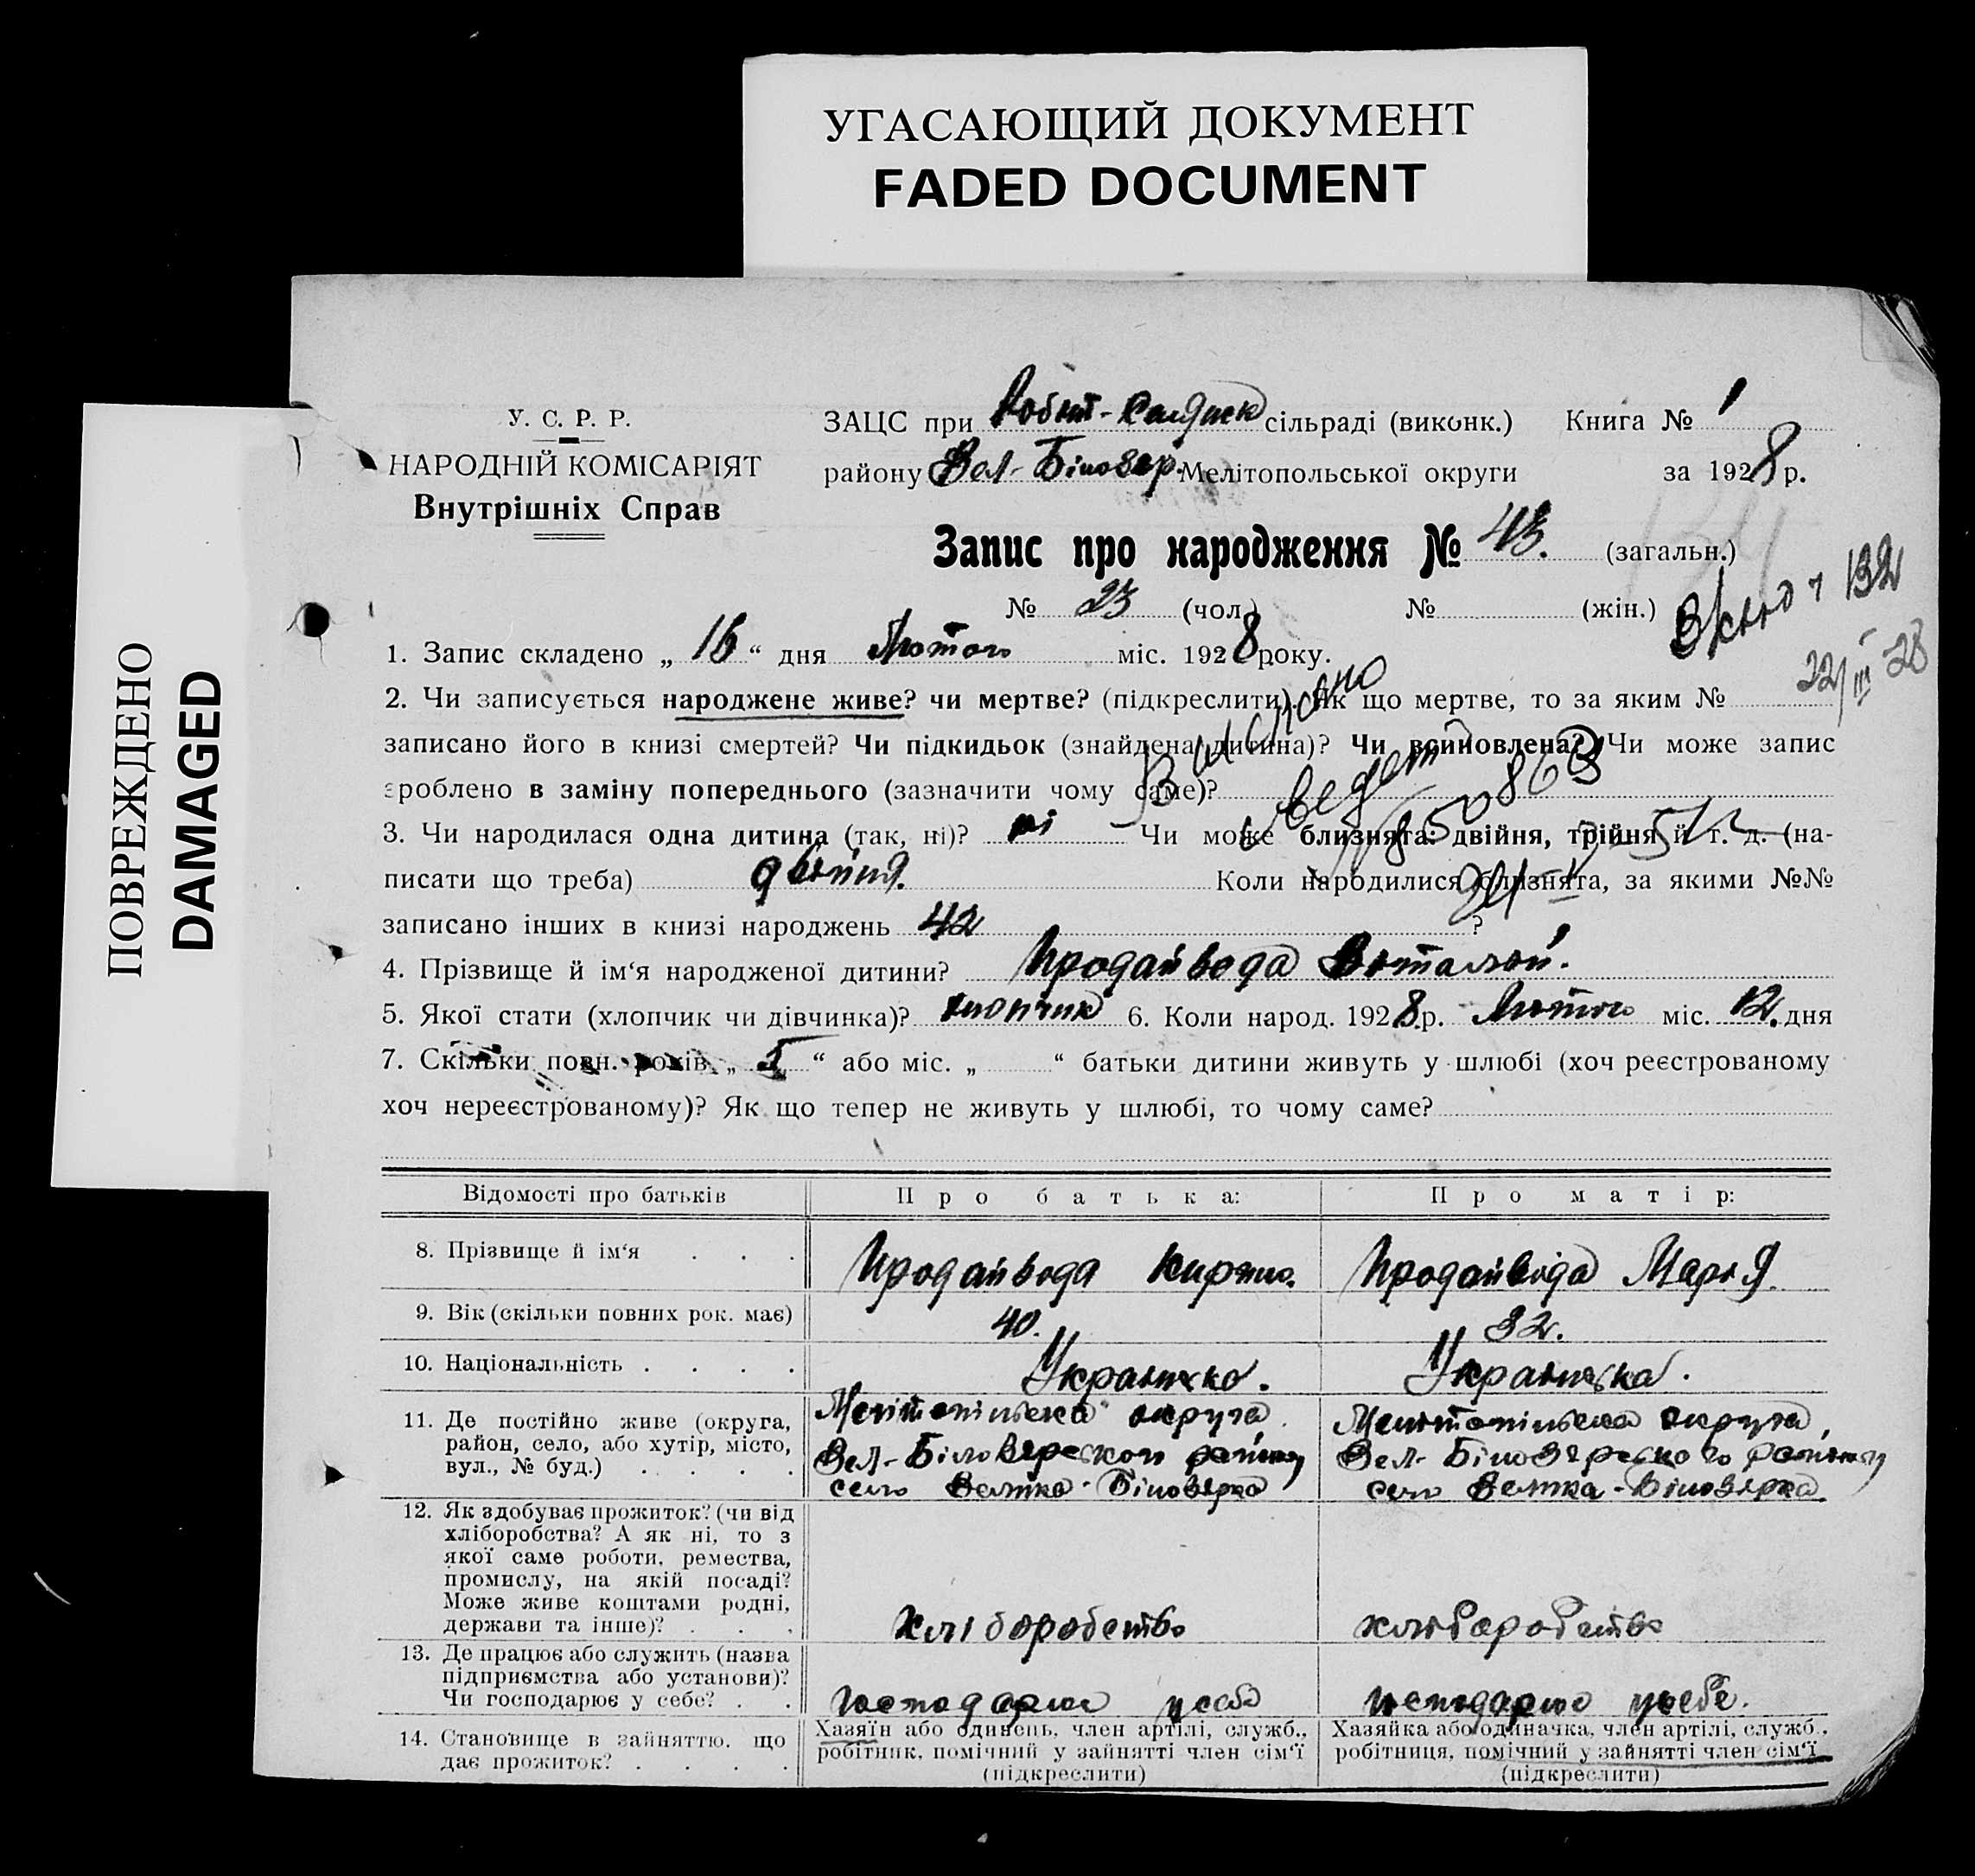 УГАСАЮЩИЙ ДОКУМЕНТ
FADED DOCUMENT
ПОВРЕЖДЕНО
DAMAGED
У. С. Р. Р.
НАРОДНІЙ КОМІСАРІЯТ
Внутрішніх Справ
ЗАЦС при сільраді (виконк.) Книга № 1
району Вел-Білозер. Мелітопольської округи за 1928 р.
Запис про народження № 43. (загальн.)
№ 23 (чол.) № (жін.)
132
22/III 28
1. Запис складено „ 16 “ дня Лютого міс. 1928 року.
2. Чи записується народжене живе? чи мертве? (підкреслити). Як що мертве, то за яким №
записано його в книзі смертей? Чи підкидьок (знайдена дитина)? Чи всиновлена? Чи може запис
зроблено в заміну попереднього (зазначити чому саме)?
Виписано
3. Чи народилася одна дитина (так, ні)? ні Чи може близнята: двійня, трійня й т. д. (на-
писати що треба) двійня. Коли народилися близнята, за якими №№
записано інших в книзі народжень 42 ?
4. Прізвище й ім‘я народженої дитини? Продайвода Віталій.
5. Якої стати (хлопчик чи дівчинка)? хлопчик 6. Коли народ. 1928 р. Лютого міс. 12. дня
7. Скільки повн. років „ 5 “ або міс. „ “ батьки дитини живуть у шлюбі (хоч реєстрованому
хоч нереєстрованому)? Як що тепер не живуть у шлюбі, то чому саме?
Відомості про батьків Про батька: Про матір:
8. Прізвище й ім‘я . . . Продайвода Кирило. Продайвода Марія.
9. Вік (скільки повних рок. має) 40. 32.
10. Національність . . . . Українка.
11. Де постійно живе (округа, район, село, або хутір, місто, вул., № буд.) . . . .
Мелітопільська округа Вел-Білозерського району село Велика-Білозерка
Мелітопільська округа, Вел-Білозерського району село Велика-Білозерка
12. Як здобуває прожиток? (чи від хліборобства? А як ні, то з якої саме роботи, ремества, промислу, на якій посаді? Може живе коштами родні, держави та інше)? . . .
хліборобство хліборобство
13. Де працює або служить (назва підприємства або установи)? Чи господарює у себе? . .
господарює у себе господарює у себе.
14. Становище в зайняттю, що дає прожиток? . . . .
Хазяїн або одинець, член артілі, служб., робітник, помічний у зайнятті член сім‘ї (підкреслити)
Хазяйка або одиначка, член артілі, служб., робітниця, помічний у зайнятті член сім‘ї (підкреслити)